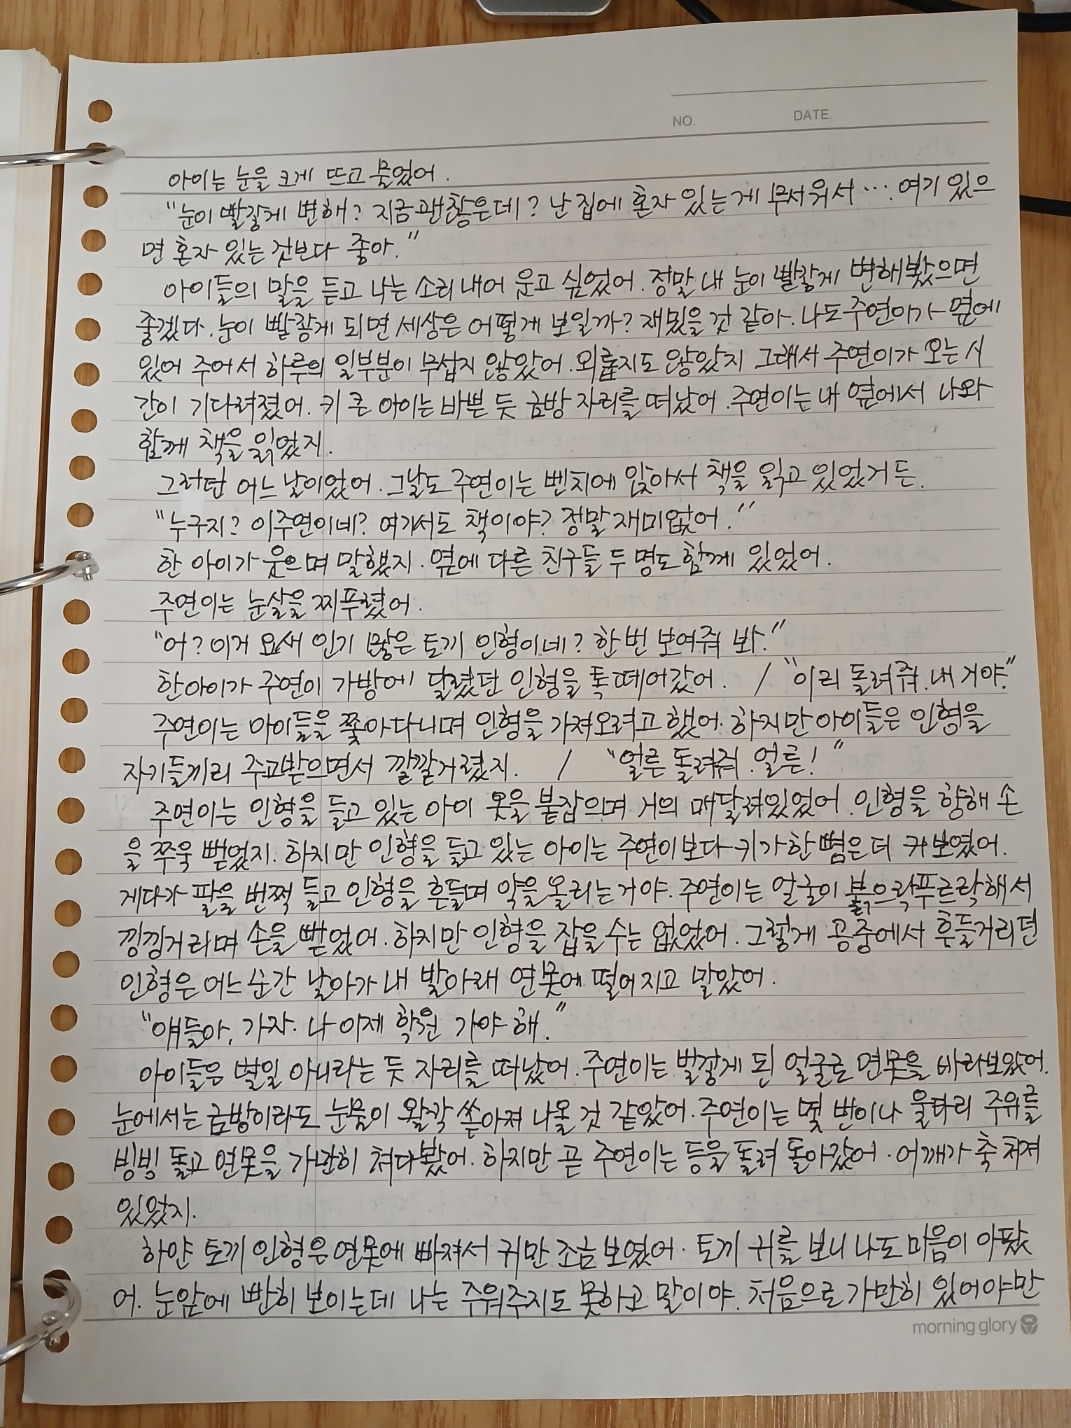 NO. DATE.
아이는 눈을 크게 뜨고 물었어.
"눈이 빨갛게 변해? 지금 괜찮은데? 난 집에 혼자 있는 게 무서워서 … 여기 있으
면 혼자 있는 것보다 좋아."
아이들의 말을 듣고 나는 소리내어 웃고 싶었어. 정말 내 눈이 빨갛게 변해봤으면
좋겠다. 눈이 빨갛게 되면 세상은 어떻게 보일까? 재밌을 것 같아. 나도 주연이가 옆에
있어 주어서 하루의 일부분이 무섭지 않았어. 외롭지도 않았지 그래서 주연이가 오는 시
간이 기다려졌어. 키 큰 아이는 바쁜 듯 금방 자리를 떠났어. 주연이는 내 옆에서 나와
함께 책을 읽었지.
그러던 어느 날이었어. 그날도 주연이는 벤치에 앉아서 책을 읽고 있었거든.
"누구지? 이주연이네? 여기서도 책이야? 정말 재미없어."
한 아이가 웃으며 말했지. 옆에 다른 친구들 두 명도 함께 있었어.
주연이는 눈살을 찌푸렸어.
"어? 이거 요새 인기 많은 토끼 인형이네? 한번 보여줘 봐."
한 아이가 주연이 가방에 달렸던 인형을 톡 떼어갔어. / "이리 돌려줘. 내 거야."
주연이는 아이들을 쫓아다니며 인형을 가져오려고 했어. 하지만 아이들은 인형을
자기들끼리 주고받으면서 깔깔거렸지. / "얼른 돌려줘. 얼른!"
주연이는 인형을 들고 있는 아이 옷을 붙잡으며 거의 매달려있었어. 인형을 향해 손
을 쭈욱 뻗었지. 하지만 인형을 들고 있는 아이는 주연이보다 키가 한 뼘은 더 커보였어.
게다가 팔을 번쩍 들고 인형을 흔들며 약을 올리는 거야. 주연이는 얼굴이 붉으락푸르락해서
낑낑거리며 손을 뻗었어. 하지만 인형을 잡을 수는 없었어. 그렇게 공중에서 흔들거리던
인형은 어느 순간 날아가 내 발아래 연못에 떨어지고 말았어.
"얘들아, 가자. 나 이제 학원 가야 해."
아이들은 별일 아니라는 듯 자리를 떠났어. 주연이는 빨갛게 된 얼굴로 연못을 바라보았어.
눈에서는 금방이라도 눈물이 왈칵 쏟아져 나올 것 같았어. 주연이는 몇 번이나 울타리 주위를
빙빙 돌고 연못을 가만히 쳐다봤어. 하지만 곧 주연이는 등을 돌려 돌아갔어. 어깨가 축 처져
있었지.
하얀 토끼 인형은 연못에 빠져서 귀만 조금 보였어. 토끼 귀를 보니 나도 마음이 아팠
어. 눈앞에 빤히 보이는데 나는 주워주지도 못하고 말이야. 처음으로 가만히 있어야만
morning glory